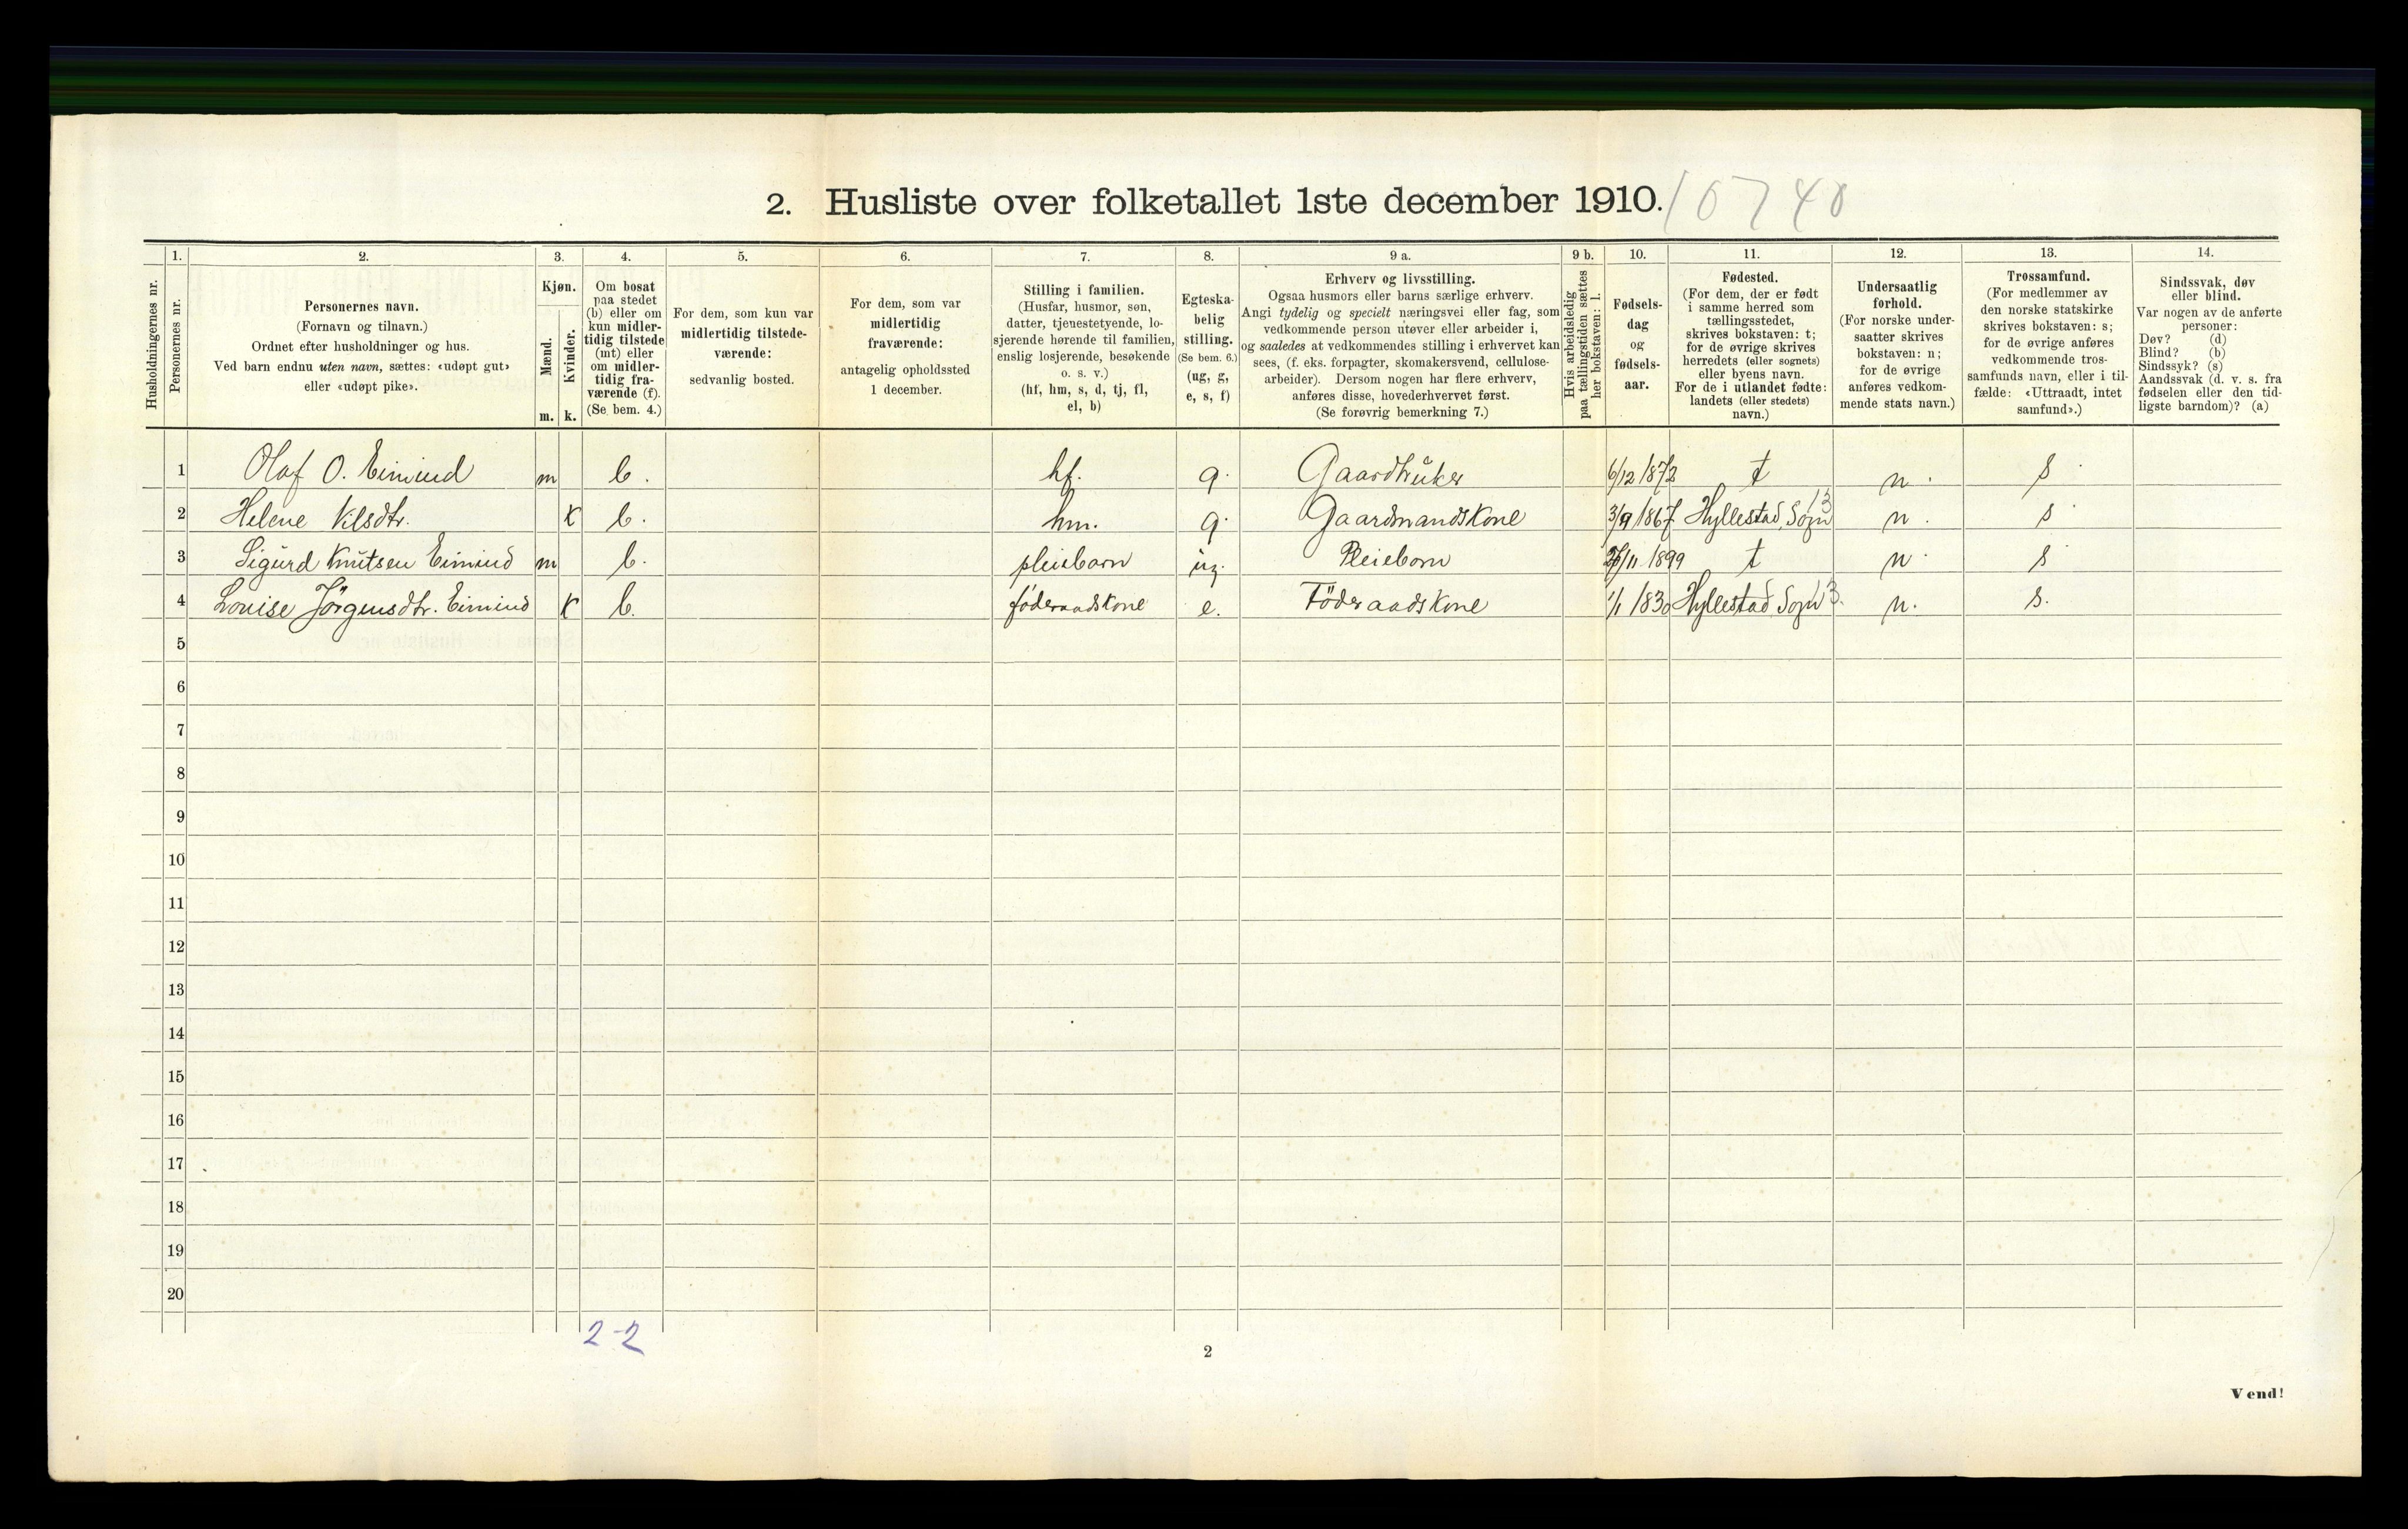 2. Husliste over folketallet 1ste december 1910. 10740
1. 2. 3. 4. 5. 6. 7. 8. 9 a. 9 b. 10. 11. 12. 13. 14.
Husholdningernes nr.
Personernes nr.
Personernes navn.
(Fornavn og tilnavn.)
Ordnet efter husholdninger og hus.
Ved barn endnu uten navn, sættes: «udøpt gut»
eller «udøpt pike».
Kjøn.
Mænd.
Kvinder.
m. k.
Om bosat
paa stedet
(b) eller om
kun midler-
tidig tilstede
(mt) eller
om midler-
tidig fra-
værende (f).
(Se bem. 4.)
For dem, som kun var
midlertidig tilstede-
værende:
sedvanlig bosted.
For dem, som var
midlertidig
fraværende:
antagelig opholdssted
1 december.
Stilling i familien.
(Husfar, husmor, søn,
datter, tjenestetyende, lo-
sjerende hørende til familien,
enslig losjerende, besøkende
o. s. v.)
(hf, hm, s, d, tj, fl,
el, b)
Egteska-
belig
stilling.
(Se bem. 6.)
(ug, g,
e, s, f)
Erhverv og livsstilling.
Ogsaa husmors eller barns særlige erhverv.
Angi tydelig og specielt næringsvei eller fag, som
vedkommende person utøver eller arbeider i,
og saaledes at vedkommendes stilling i erhvervet kan
sees, (f. eks. forpagter, skomakersvend, cellulose-
arbeider). Dersom nogen har flere erhverv,
anføres disse, hovederhvervet først.
(Se forøvrig bemerkning 7.)
Hvis arbeidsledig
paa tællingstiden sættes
her bokstaven: l.
Fødsels-
dag
og
fødsels-
aar.
Fødested.
(For dem, der er født
i samme herred som
tællingsstedet,
skrives bokstaven: t;
for de øvrige skrives
herredets (eller sognets)
eller byens navn.
For de i utlandet fødte:
landets (eller stedets)
navn.)
Undersaatlig
forhold.
(For norske under-
saatter skrives
bokstaven: n;
for de øvrige
anføres vedkom-
mende stats navn.)
Trossamfund.
(For medlemmer av
den norske statskirke
skrives bokstaven: s;
for de øvrige anføres
vedkommende tros-
samfunds navn, eller i til-
fælde: «Uttraadt, intet
samfund».)
Sindssvak, døv
eller blind.
Var nogen av de anførte
personer:
Døv? (d)
Blind? (b)
Sindssyk? (s)
Aandssvak (d. v. s. fra
fødselen eller den tid-
ligste barndom)? (a)
1 Olaf O. Eimind m b. hf. g. Gaardbruker 6/12 1872 t n. s.
2 Helene Nilsdtr. k b. hm. g. Gaardmandskone 3/9 1867 Hyllestad, Sogn 13 n. s.
3 Sigurd Knutsen Eimind m b. pleiebarn ug. Pleiebarn /11 1899 t n. s.
4 Louise Jörgensdtr. Eimind k b. föderaadskone e. Föderaadskone 1/1 1830 Hyllestad, Sogn 13. n. s.
5
6
7
8
9
10
11
12
13
14
15
16
17
18
19
20
2-2
2
Vend!